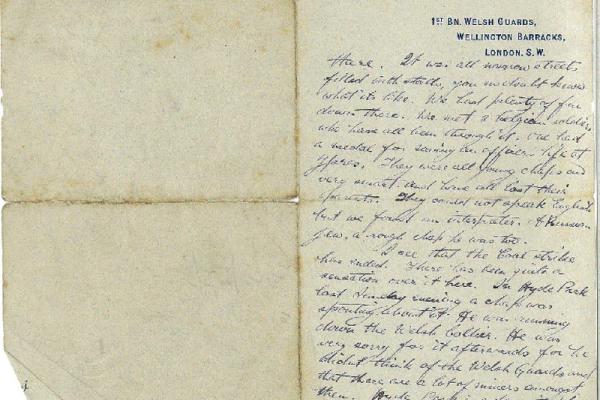 1ST BN. WELSH GUARDS,
WELLINGTON BARRACKS,
LONDON. S.W.
there. It was all narrow streets
filled with stalls, you no doubt know
what its like. We had plenty of fun
down there. We met 4 Belgian soldiers
who have all been through it. One had
a medal for saving an officers life at
Ypres. They were all young chaps and
very smart and have all lost their
parents. They could not speak English
but we found an interpreter. A Russian
Jew, a rough chap he was too.
I see that the Coal strike
has ended. There has been quite a
sensation over it here. In Hyde Park
last Sunday evening a chap was
spouting about it. He was running
down the Welsh Collier. He was
very sorry for it afterwards for he
didnt think of the Welsh Guards and
that there are a lot of miners amongst
them. Hyde Park